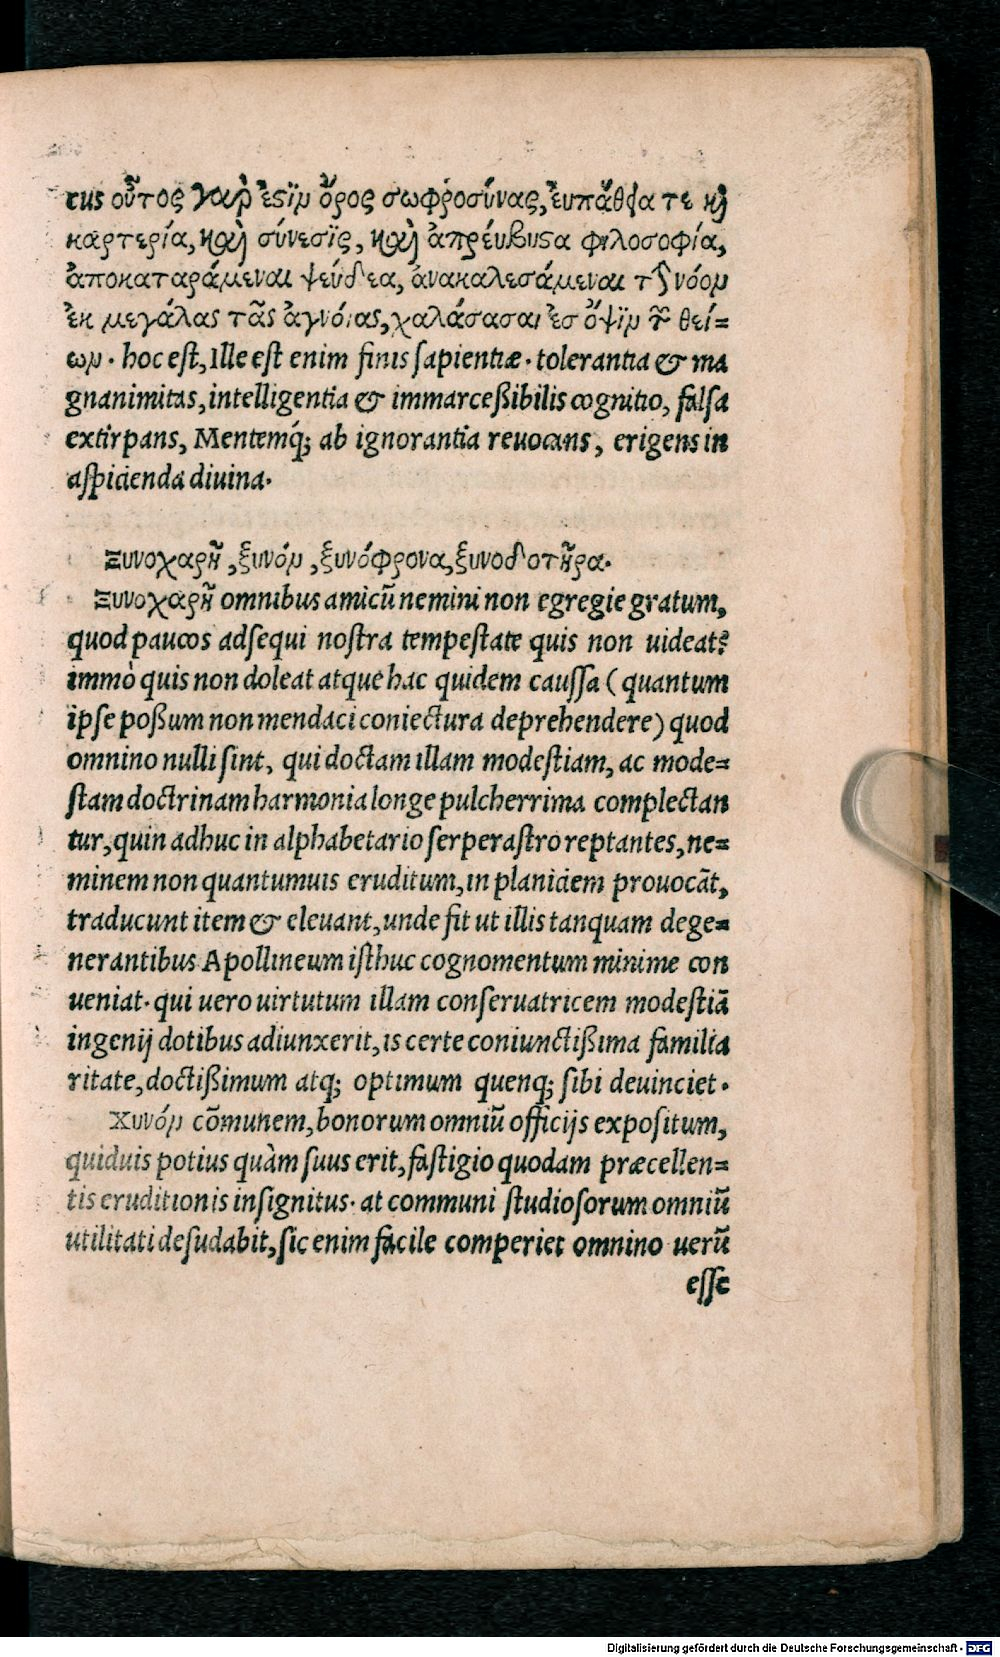 tus οὗτος γαρ̀ ἐςϊν ὅρος σωφροσύνας, ἐυπάθεια τε κὶ
καρτερία, καὶ σύνεσϊς, καὶ ἀπρέυβυςα φιλοσοφία,
ἀποκαταράμεναι ψεύδεα, ἀνακαλεσάμεναι τὸν νόον
ἐκ μεγάλας τᾶς ἀγνόιας, χαλάσασαι ἐσ ὄψϊν τῶν θεί=
ων. hoc est, Ille est enim finis sapientiæ. tolerantia & ma
gnanimitas, intelligentia & immarceßibilis cognitio, falsa
extirpans, Mentemq́; ab ignorantia reuocans, erigens in
aspicienda diuina.
Ξυνοχαρῆ, ξυνόν, ξυνόφρονα, ξυνοδοτῆρα.
Ξυνοχαρῆ omnibus amicū nemini non egregie gratum,
quod paucos adsequi nostra tempestate quis non uideat?
immò quis non doleat atque hac quidem caussa (quantum
ipse poßum non mendaci coniectura deprehendere) quod
omnino nulli sint, qui doctam illam modestiam, ac mode=
stam doctrinam harmonia longe pulcherrima complectan
tur, quin adhuc in alphabetario serperastro reptantes, ne=
minem non quantumuis eruditum, in planiciem prouocāt,
traducunt item & eleuant, unde fit ut illis tanquam dege=
nerantibus Apollineum isthuc cognomentum minime con
ueniat. qui uero uirtutum illam conseruatricem modestiā
ingenij dotibus adiunxerit, is certe coniunctißima familia
ritate, doctißimum atq; optimum quenq; sibi deuinciet.
Χυνόν cōmunem, bonorum omniū officijs expositum,
quiduis potius quàm suus erit, fastigio quodam præcellen=
tis eruditionis insignitus. at communi studiosorum omniū
utilitati desudabit, sic enim facile comperiet omnino uerū
esse
Digitalisierung gefördert durch die Deutsche Forschungsgemeinschaft - DFG